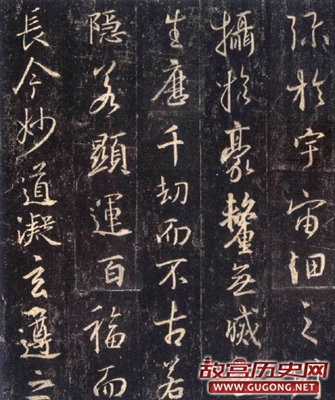 弥於宇宙細之
攝於豪氂無滅
生歷千劫而不古若
隱若顯運百福而
長今妙道凝玄遵之
故宫历史网
WWW.GUGONG.NET